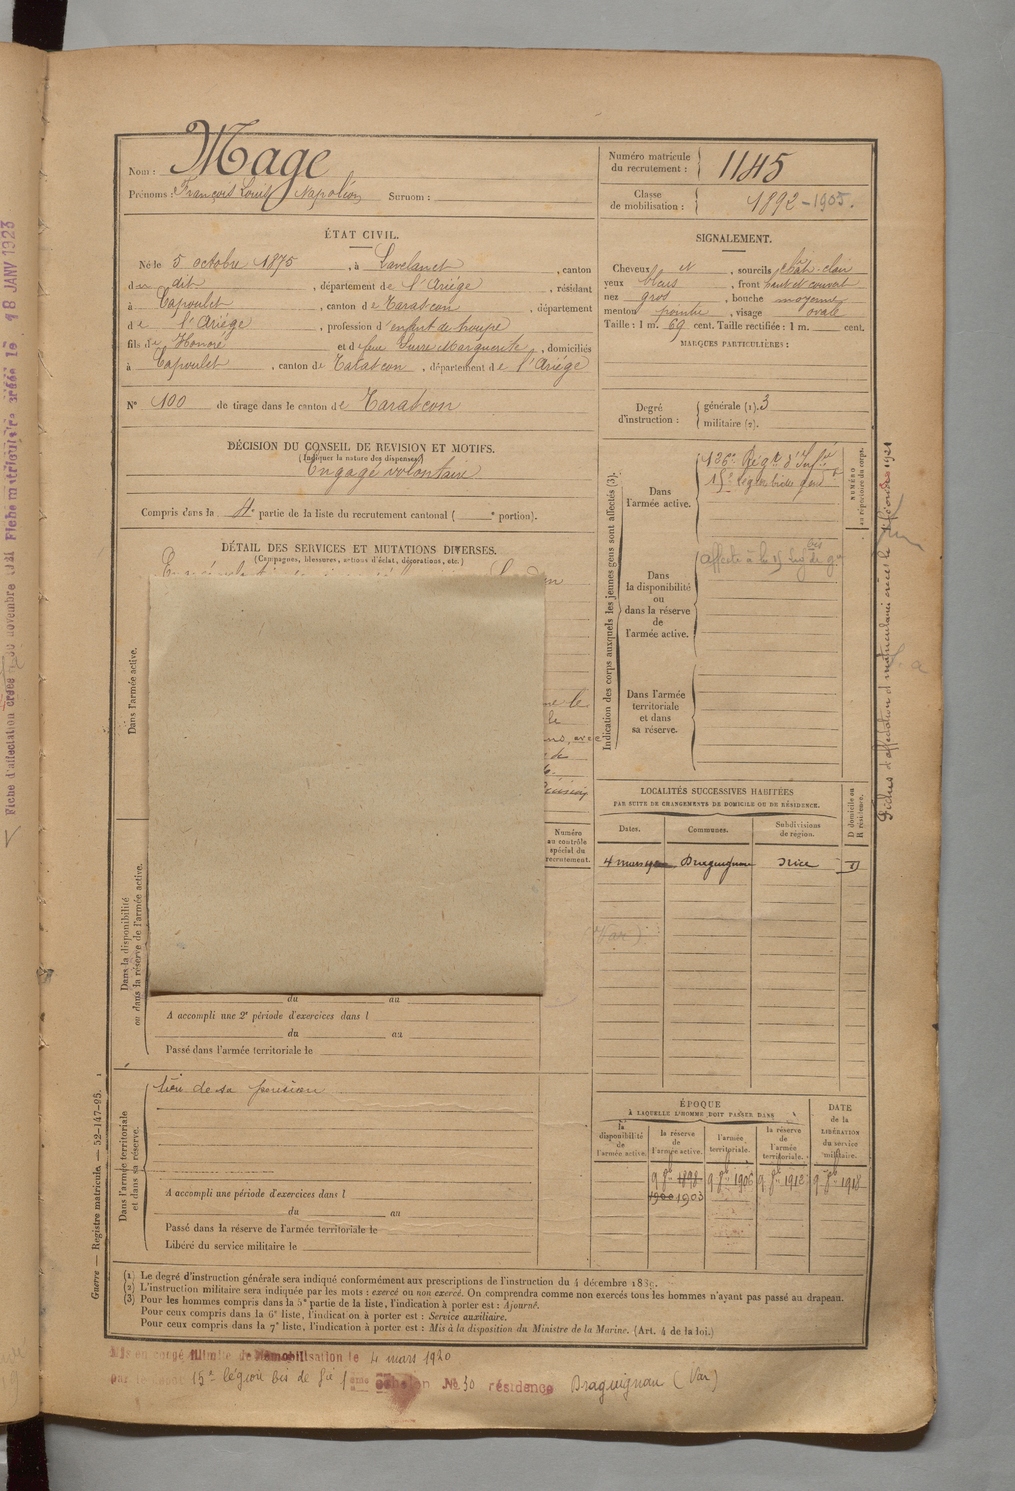 Nom : Mage
Prénoms : François Louis Napoléon Surnom :
Numéro matricule
du recrutement : 1145
Classe
de mobilisation : 1892 - 1905.
ÉTAT CIVIL.
Né le 5 octobre 1875, à Lavelanet, canton
du dit, département de l'Ariège, résidant
à Capoulet, canton de Tarascon, département
de l'Ariège, profession d'enfant de troupe
fils de Honoré et de feue Marguerite, domiciliés
à Capoulet, canton de Tarascon, département de l'Ariège
N° 100 de tirage dans le canton de Tarascon
SIGNALEMENT.
Cheveux et, sourcils chât-clair
yeux bleus, front haut et couvert
nez gros, bouche moyenne
menton pointu, visage ovale
Taille : 1 m. 69 cent. Taille rectifiée : 1 m. cent.
MARQUES PARTICULIÈRES :
Degré
d'instruction :
générale (1). 3
militaire (2).
DÉCISION DU CONSEIL DE REVISION ET MOTIFS.
(Indiquer la nature des dispenses.)
Engagé volontaire
Compris dans la 4e partie de la liste du recrutement cantonal ( e portion).
DÉTAIL DES SERVICES ET MUTATIONS DIVERSES.
(Campagnes, blessures, actions d'éclat, décorations, etc.)
Dans l'armée active.
Dans la disponibilité
ou dans la réserve de l'armée active.
Numéro
au contrôle
spécial du
recrutement.
du au
A accompli une 2e période d'exercices dans l
du au
Passé dans l'armée territoriale le
Dans l'armée territoriale
et dans sa réserve.
de sa pension
A accompli une période d'exercices dans l
du au
Passé dans la réserve de l'armée territoriale le
Libéré du service militaire le
Indication des corps auxquels les jeunes gens sont affectés (3).
NUMÉRO
au répertoire du corps.
Dans
l'armée active.
126e Régt d'Infie
15e Légion bis de gend
Dans
la disponibilité
ou
dans la réserve
de
l'armée active.
affecté à la 15 Légon bis de gie
Dans l'armée
territoriale
et dans
sa réserve.
LOCALITÉS SUCCESSIVES HABITÉES
PAR SUITE DE CHANGEMENTS DE DOMICILE OU DE RÉSIDENCE.
Dates. Communes. Subdivisions
de région.
D domicile ou
R résidence.
4 mars Draguignan Nice
Var)
ÉPOQUE
À LAQUELLE L'HOMME DOIT PASSER DANS
la
disponibilité
de
l'armée active.
la réserve
de
l'armée active.
l'armée
territoriale.
la réserve
de
l'armée
territoriale.
DATE
de la
LIBÉRATION
du service
militaire.
9 8bre 1898 9 8bre 1906 9 8bre 1912 9 8bre 1918
1900 1903
(1) Le degré d'instruction générale sera indiqué conformément aux prescriptions de l'instruction du 4 décembre 1889.
(2) L'instruction militaire sera indiquée par les mots : exercé ou non exercé. On comprendra comme non exercés tous les hommes n'ayant pas passé au drapeau.
(3) Pour les hommes compris dans la 5e partie de la liste, l'indication à porter est : Ajourné.
Pour ceux compris dans la 6e liste, l'indication à porter est : Service auxiliaire.
Pour ceux compris dans la 7e liste, l'indication à porter est : Mis à la disposition du Ministre de la Marine. (Art. 4 de la loi.)
Mis en congé illimité de démobilisation le 4 mars 1920
15e légion bis de Gie 1 eme échelon N° 30 résidence Draguignan (Var)
Guerre — Registre matricule — 52-147-95.
Fiche d'affectation créée le 30 novembre 1921 Fiche matriculaire créée le 18 JANV 1923